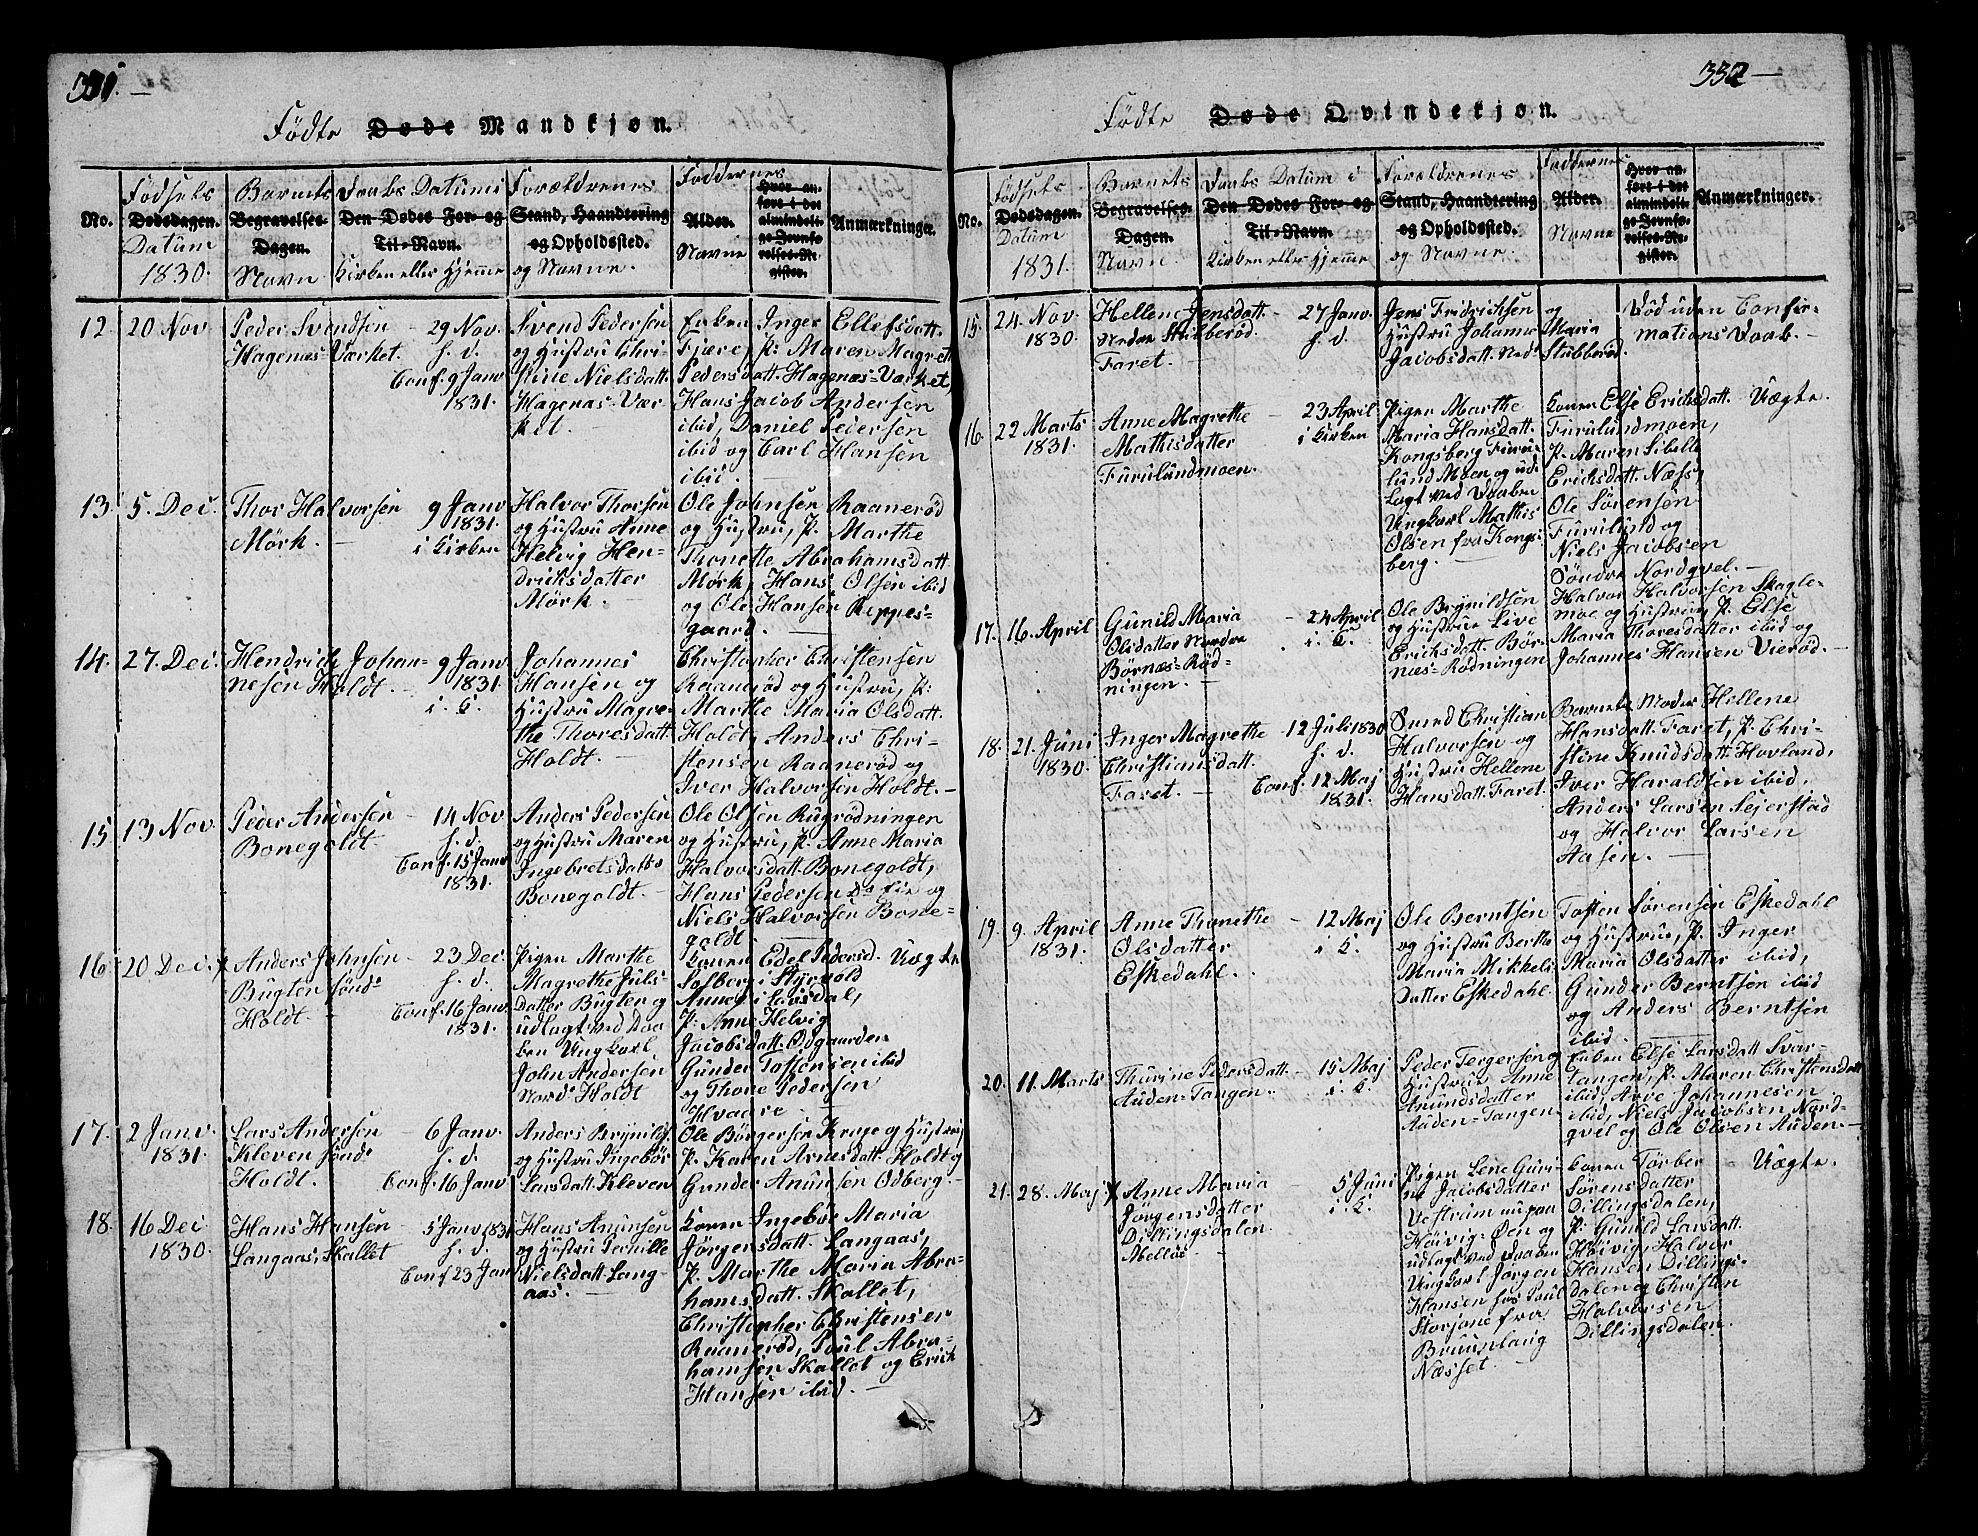 331. —
Födte Døde Mandkjøn.
No.
Födsels
Dødsdagen.
Datum
1830.
Barnets
Begravelses-
Dagen.
Navn
Daabs Datum i
Den Dødes For- og
Til-Navn.
Kirken eller Hjemme
Forældrenes
Stand, Haandtering
og Opholdssted.
og Navne.
Faddernes
Alder.
Navne
Hvor an-
ført i det
almindeli-
ge Jevnfø-
relses-Re-
gister.
Anmærkninger.
12. 20 Nov.
Peder Svendsen
Hagenæs Værket.
29 Nov.
h. d.
Conf. 9 Janv
1831.
Svend Pedersen
og Hustru Chri-
stine Nielsdatt.
Hagenæs-Vær-
ket.
Enken Inger Ellefsdatt.
Fjære, P. Maren Magret
Pedersdatt. Hagenæs-Værket,
Hans Jacob Andersen
ibid, Daniel Pedersen
ibid og Carl Hansen
ibid.
13. 5. Dec.
Thor Halvorsen
Mörk. —
9 Janv
1831.
i Kirken
Halvor Thorsen
og Hustru Anne
Helvig Hen-
drichsdatter
Mörk. —
Ole Johnsen Raanerød
og Hustru, P. Marthe
Thonette Abrahamsdatt.
Mörk, Hans Olsen ibid
og Ole Hansen Reppes-
gaard. —
14. 27. Dec.
Hendrich Johan-
nesen Holdt. —
9 Janv
1831.
i. K.
Johannes
Hansen og
Hustru Magre-
the Thoresdatt.
Holdt. —
Christopher Christensen
Raanerød og Hustru, P.
Marthe Maria Olsdatt.
Holdt, Anders Chri-
stensen Raanerød og
Iver Halvorsen Holdt. —
15 13 Nov.
Peder Andersen
Bonegoldt
14 Nov
h. d.
Conf. 15 Janv
1831.
Anders Pedersen
og Hustru Maren
Ingebretsdatt
Bonegoldt —
Ole Olsen Rugrödningen
og Hustru, P. Anne Maria
Halvorsdatt. Bonegoldt,
Hans Pedersen og
Niels Halvorsen Bone-
goldt
16. 20 Dec.
Anders Johnsen
Bugten sönd.
Holdt. —
23 Dec.
h. d.
Conf. 16 Janv
1831.
Pigen Marthe
Magrethe Juls-
datter Bugten og
udlagt ved Daa-
ben Ungkarl
John Andersen
Nord. Holdt
Konen Edel Pedersd.
Solberg i Styrvold
Annex i Larsdal,
P. Anne Helvig
Jacobsdatt. Odgaarden
Gunder Tostensen ibid
og Thone Pedersen
Hvaare. —
Uægte.
17. 2 Janv.
1831.
Lars Andersen
Kleven sönd.
Holdt. —
6 Janv.
h. d.
Conf. 16 Janv
Anders Brynilds.
og Hustru Ingebör
Larsdatt. Kleven
Ole Börgersen Krage og Hustru,
P. Karen Arnesdatt. Holdt og
Gunder Anunsen Odberg. —
18. 16 Dec
1830.
Hans Hansen
Langaas, Skallet
5 Janv 1831
h. d.
Conf. 23 Jan
Hans Anunsen
og Hustru Pernille
Nielsdatt. Lang-
aas. —
Konen Ingebör Maria
Jörgensdatt. Langaas,
P. Marthe Maria Abra-
hamsdatt. Skallet,
Christopher Christensen
Raanerød, Poul Abra-
hamsen Skallet og Erich
Hansen ibid. —
332 —
Födte Døde Qvindekjøn.
No.
Födsels
Dødsdagen.
Datum
1831.
Barnets
Begravelses-
Dagen.
Navn
Daabs Datum i
Den Dødes For- og
Til-Navn.
Kirken eller Hjemme
Forældrenes
Stand, Haandtering
og Opholdssted.
og Navne.
Faddernes
Alder.
Navne
Hvor an-
ført i det
almindeli-
ge Jevnfø-
relses-Re-
gister.
Anmærkninger.
15. 24. Nov.
1830.
Hellene Jensdatt.
Nedre Stubberød.
Faret.
27 Janv.
h. d.
Jens Fridrichsen og
Hustru Johanne Maria
Jacobsdatt. Ned. Stubberød.
Död uden Confir-
mations Daab. —
16. 22 Marts
1831.
Anne Magrethe
Mathisdatter
Furulundmoen.
23 April
i Kirken
Pigen Marthe
Maria Hansdatt.
Kongsberg Furu-
lund Moen og ud-
lagt ved Daaben
Ungkarl Mathis
Olsen fra Kongs-
berg. —
Konen Else Erichsdatt.
Furulundmoen,
P. Maren Sibelle
Erichsdatt. Næss,
Ole Sörensen
Furulund og
Niels Jacobsen
Söndre Nordgvel. —
Uægte.
17. 16. April
Gunild Maria
Olsdatter Nordre
Börnæs-Röd-
ningen. —
24 April
i. K.
Ole Brynildsen
og Hustrue Live
Erichsdatt. Bör-
næs-Rödningen
Halvor Halvorsen Skagle-
moe og Hustru, P. Else
Maria Thoresdatter ibid og
Johannes Hansen Vierød. —
18. 21. Juni
1830.
Inger Magrethe
Christiansdatt.
Faret. —
12 Juli 1830
h. d.
Conf. 12 Maj
1831.
Smed Christian
Halvorsen og
Hustru Hellene
Hansdatt. Faret.
Barnets Moder Hellene
Hansdatt. Faret, P. Chri-
stine Knudsdatt. Hovland,
Iver Haraldsen ibid,
Anders Larsen Sejerstad
og Halvor Larsen
Aasen. —
19. 9. April
1831.
Anne Thonethe
Olsdatter
Eskedahl.
12 Maj
i. K.
Ole Berntsen
og Hustru Berthe
Maria Mikkels-
datter Eskedahl.
Tosten Sörensen Eskedahl
og Hustrue, P. Inger
Maria Olsdatter ibid,
Gunder Berntsen ibid
og Anders Berntsen
ibid.
20. 11. Marts
Thurine Pedersdatt.
Auden-Tangen.
15 Maj
i. K.
Peder Tergersen og
Hustrue Anne
Anundsdatter
Auden-Tangen
Enken Else Larsdatt. Svar-
tangen, P. Maren Christensdatt
ibid, Arve Johannesen
ibid, Niels Jacobsen Nord-
gvel og Ole Olsen Auden. —
21. 28. Maj
Anne Maria
Jörgensdatter
Dillingsdalen.
5 Juni
i. K.
Pigen Lene Guri-
ne Jacobsdatter
Vestrum nu paa
Höivig-Öen og
udlagt ved Daaben
Ungkarl Jörgen
Hansen hos Poul
Storjone fra
Bruunlaug
Næsset —
Konen Torber
Sörensdatter
Dillingsdalen,
P. Gunild Larsdatt.
Höivig, Halvor
Hansen Dillings-
dalen og Christen
Halvorsen
Dillingsdalen.
Uægte.